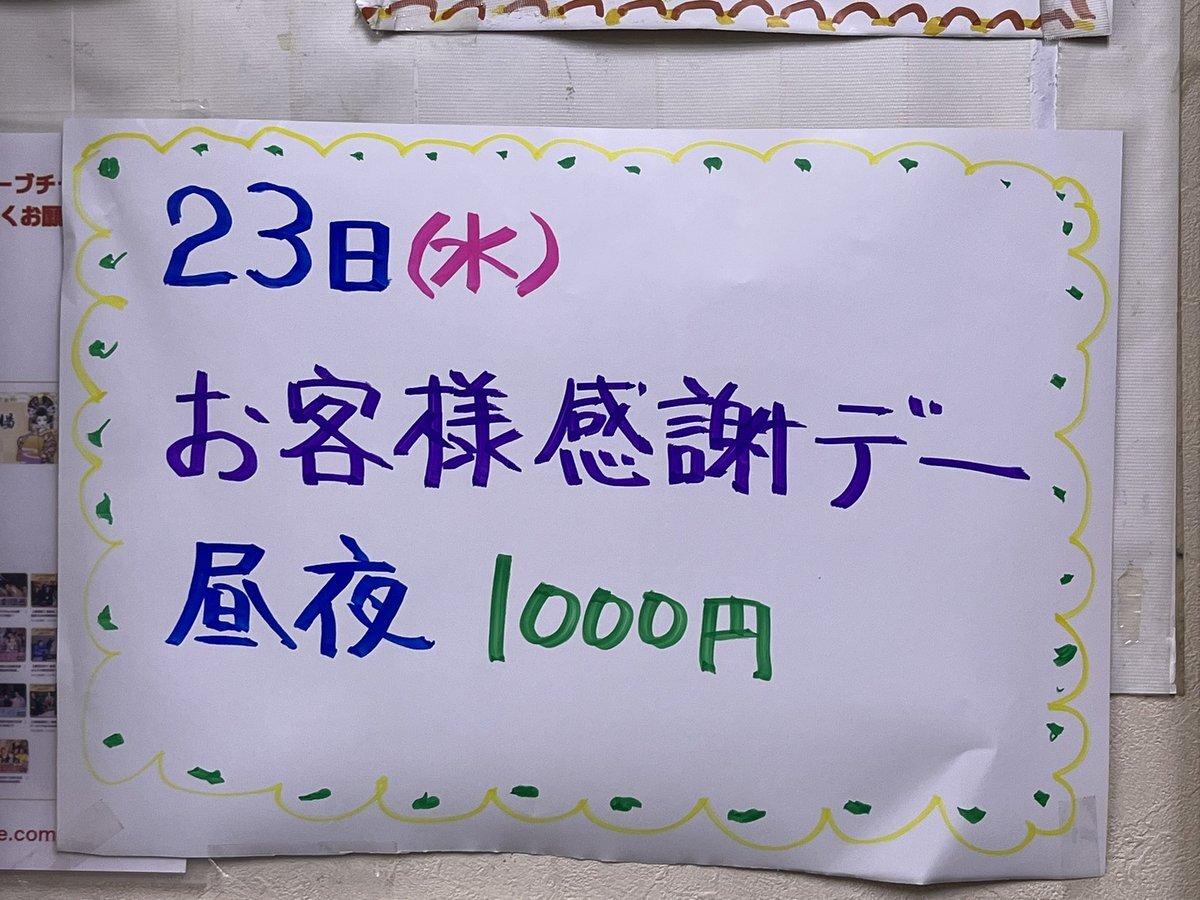 23日(水)
お客様感謝デー
昼夜 1000円
ーブチ
くお願
e.com